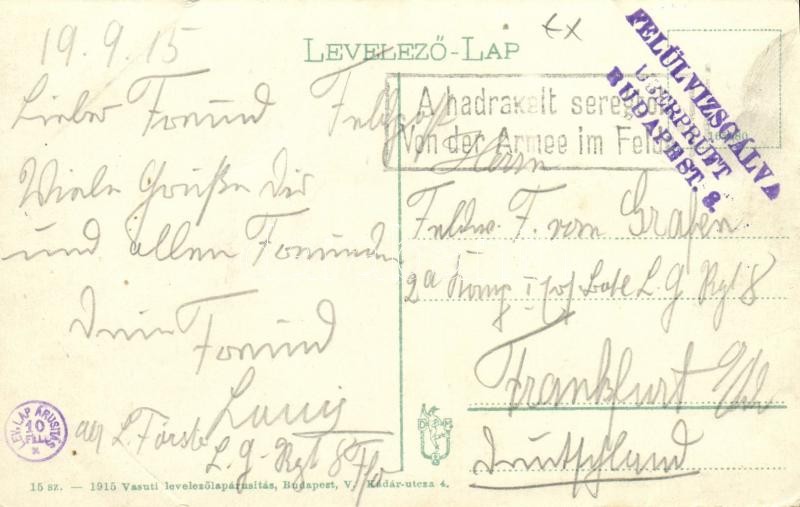 19.9.15
LEVELEZŐ-LAP
Lieber Freund Feldpost
Viele Grüße Dir
und allen Freunden
Dein Freund
Louis
L. Förste
L. G. Rgt 8 F/O
A hadrakelt seregtől
Von der Armee im Felde
FELÜLVIZSGÁLVA
ÜBERPRÜFT
BUDAPEST. 8.
Herrn
Feldw. F. von Grafen
2a Komp I Batl L. G Rgt 8
Frankfurt a/O
Deutschland
LEV. LAP ÁRUSITÁS
10
FILLÉR
15 sz. — 1915 Vasuti levelezőlapárusitás, Budapest, V. Kádár-utcza 4.